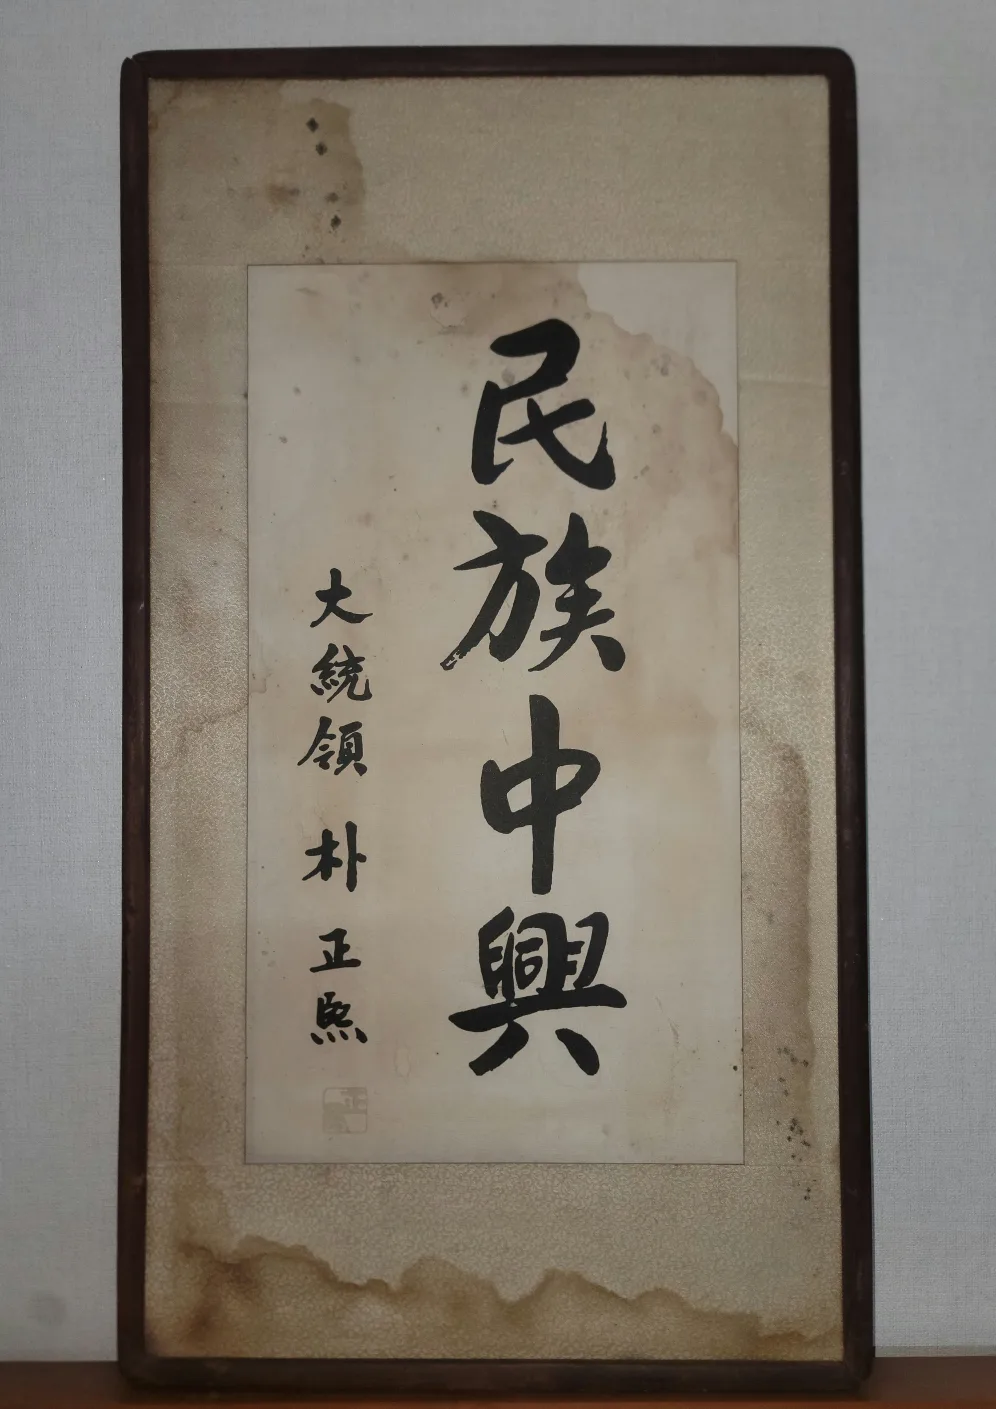 民族中興
大統領 朴正熙